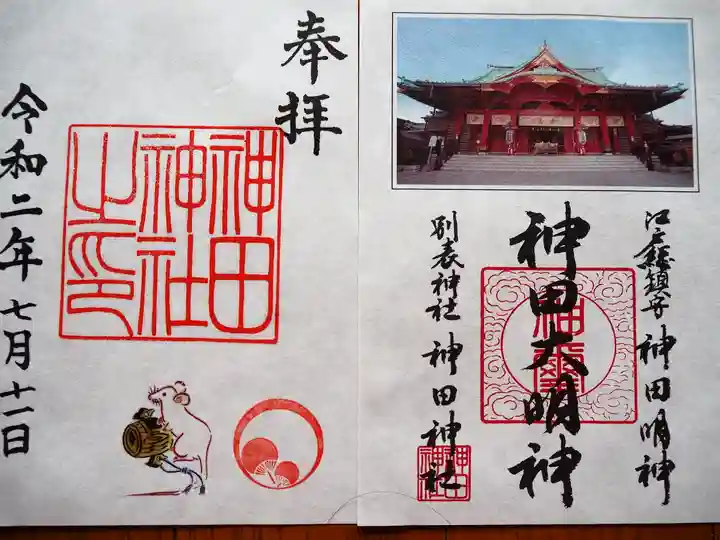 奉拝
神田
神社
之印
令和二年七月十一日
江戸総鎮守 神田明神
神田大明神
別表神社 神田神社
神田
神社